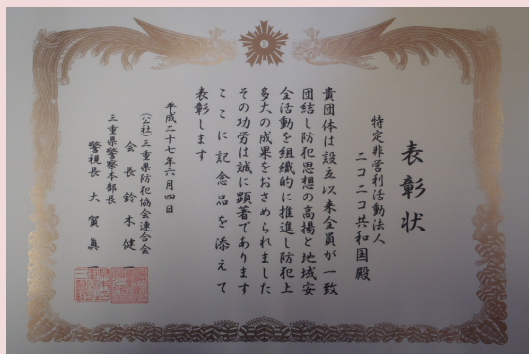 表彰状
特定非営利活動法人
ニコニコ共和国殿
貴団体は設立以来全員が一致
団結し防犯思想の高揚と地域安
全活動を組織的に推進し防犯上
多大の成果をおさめられました
その功労は誠に顕著であります
ここに記念品を添えて
表彰します
平成二十七年六月四日
(公社)三重県防犯協会連合会
会長鈴木健一
三重県警察本部長
警視長大賀眞一